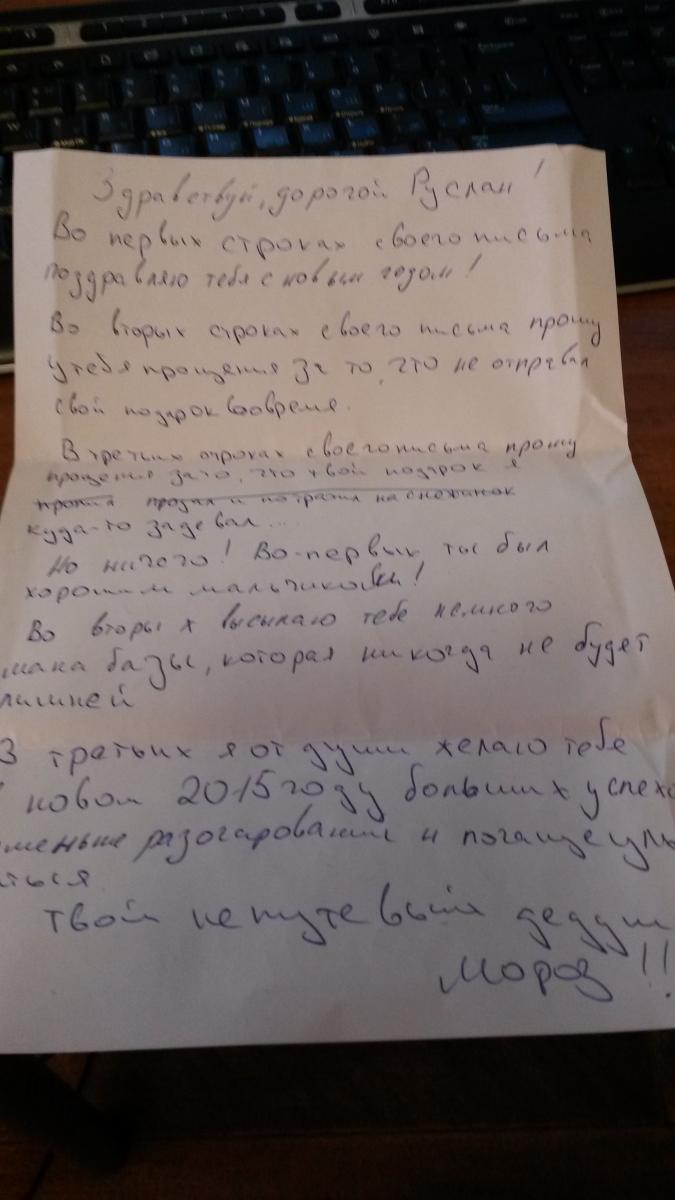 Здравствуй, дорогой Руслан!
Во первых строках своего письма
поздравляю тебя с новым годом!
Во вторых строках своего письма прошу
у тебя прощения за то, что не отправил
свой подарок вовремя.
В третьих строках своего письма прошу
прощения за то, что твой подарок я
пропил продал и потратил на снежинок
куда-то задевал...
Но ничего! Во-первых ты был
хорошим мальчиком!
Во вторых высылаю тебе немного
мана базы, которая никогда не будет
лишней
В третьих я от души желаю тебе
в новом 2015 году больших успехо
меньше разочарований и почаще улы
аться
Твой непутевый дедуш
Мороз!!